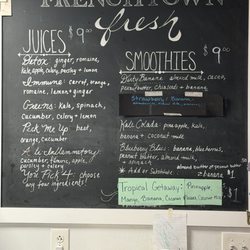 FRENCHTOWN
fresh
JUICES $9.00
Detox: ginger, romaine,
kale, apple, celery, parsley + lemon
Immune: carrot, orange,
romaine, lemon + ginger
Greens: Kale, spinach,
Cucumber, Celery + lemon
Pick Me Up: beet,
orange, cucumber
cucumber, turmeric, apple,
parsley + celery
You Pick 4: choose
any four ingredients!
SMOOTHIES $9.00
Banana: almond milk,
banana
Strawberry / Banana
Kale Colada: pineapple, kale,
banana + coconut milk
Blueberry Bliss: banana, blueberries,
peanut butter, almond milk,
* Add or Substitute almond butter or peanut butter
$1
Tropical Getaway: Pineapple,
Mango, Banana, Coconut
$1